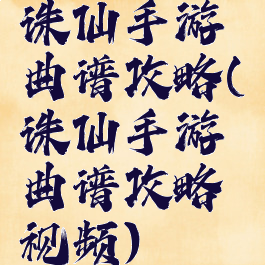 诛仙手游
曲谱攻略(
诛仙手游
曲谱攻略
视频)